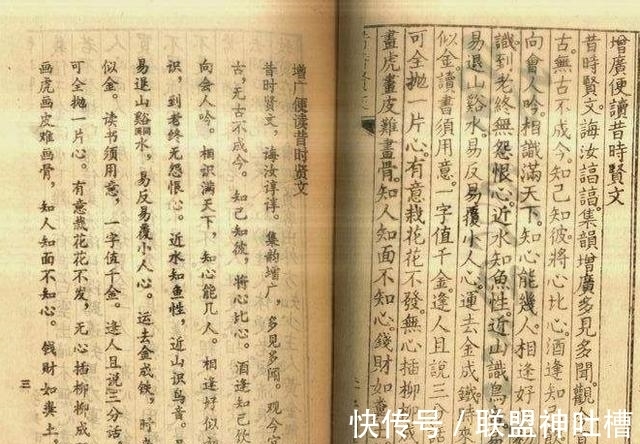 增廣便讀昔時賢文
昔時賢文誨汝諄諄。集韻增廣多見多聞。觀
古。無古不成今。知己知彼將心比心。酒逢知
向會人吟。相識滿天下。知心能幾人。相逢好
識到老終無怨恨心。近水知魚性。近山識鳥
易退山谿水。易反易覆小人心。運去金成鐵。時來
似金。讀書須用意。一字值千金。逢人且說三
可全拋一片心。有意栽花花不發。無心插柳
畫虎畫皮難畫骨。知人知面不知心。錢財如
增广便读昔时贤文
昔时贤文，诲汝谆谆。集韵增广，多见多闻。观今宜
古，无古不成今。知己知彼，将心比心。酒逢知己饮
向会人吟。相识满天下，知心能几人。相逢好似初
识，到老终无怨恨心。近水知鱼性，近山识鸟音。
易退山谿水，易反易覆小人心。运去金成铁，时来
似金。读书须用意，一字值千金。逢人且说三分话，
可全抛一片心。有意栽花花不发，无心插柳柳成
画虎画皮难画骨，知人知面不知心。钱财如粪土，
三
快传号／联盟神吐槽